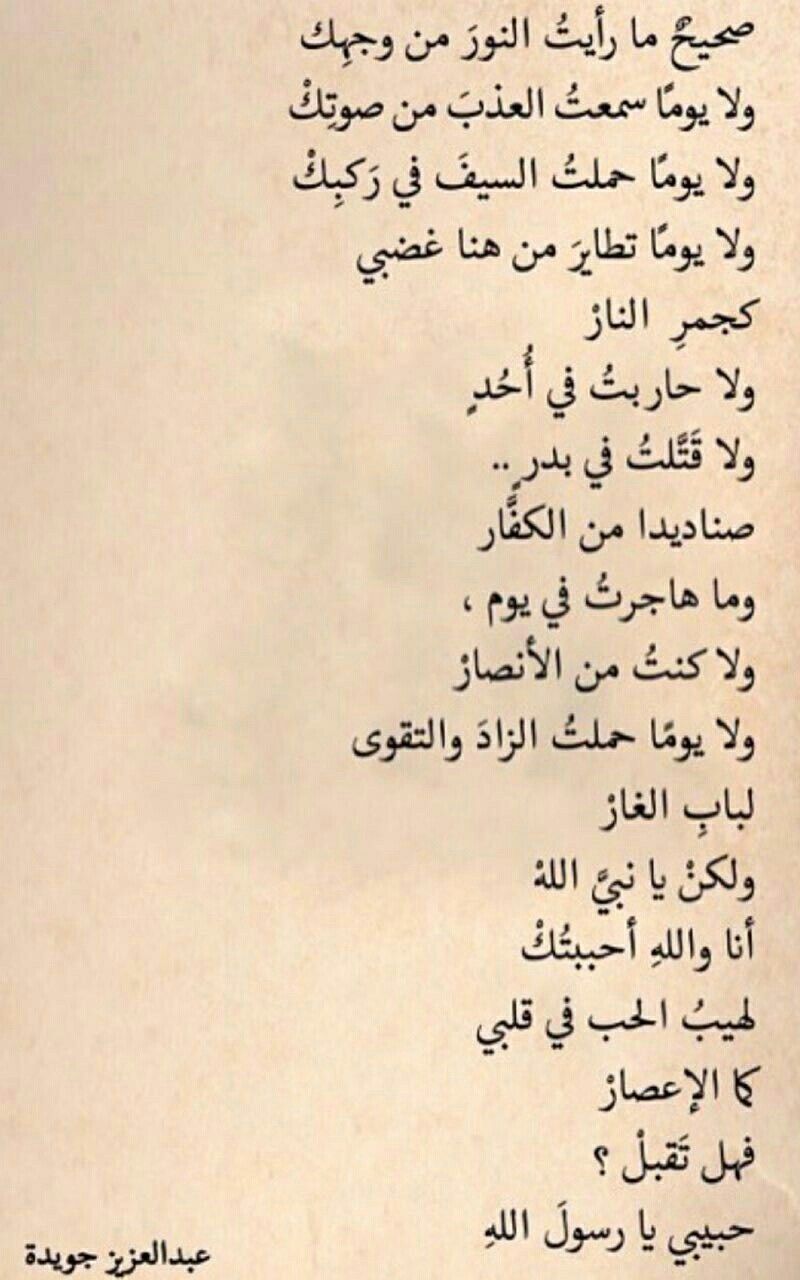 صحيحٌ ما رأيتُ النورَ من وجهِك
ولا يومًا سمعتُ العذبَ من صوتِكْ
ولا يومًا حملتُ السيفَ في رَكبِكْ
ولا يومًا تطايرَ من هنا غضبي
كجمرِ النارْ
ولا حاربتُ في أُحُدٍ
ولا قَتَّلتُ في بدرٍ ..
صناديدا من الكفَّار
وما هاجرتُ في يوم ،
ولا كنتُ من الأنصارْ
ولا يومًا حملتُ الزادَ والتقوى
لبابِ الغارْ
ولكنْ يا نبيَّ اللهْ
أنا واللهِ أحببتُكْ
لهيبُ الحب في قلبي
كما الإعصارْ
فهل تَقبلْ ؟
حبيبي يا رسولَ اللهِ
عبدالعزيز جويدة